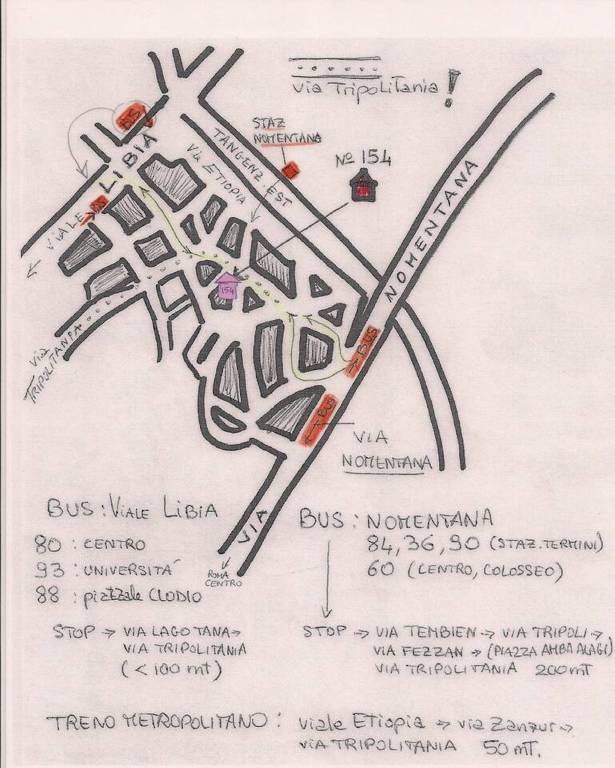 via Tripolitania!
BUS
STAZ
NOMENTANA
TANGENZ. EST
VIA ETIOPIA
Nº 154
VIALE LIBIA
NOMENTANA
154
VIA
TRIPOLITANIA
BUS
BUS
VIA
NOMENTANA
VIA
ROMA
CENTRO
BUS: VIALE LIBIA
80 : CENTRO
93 : UNIVERSITÁ
88 : piazzale CLODIO
STOP → VIA LAGO TANA →
VIA TRIPOLITANIA
(< 100 mt)
BUS : NOMENTANA
84, 36, 90 (STAZ. TERMINI)
60 (CENTRO, COLOSSEO)
STOP → VIA TEMBIEN → VIA TRIPOLI →
VIA FEZZAN → (PIAZZA AMBA ALAGI)
VIA TRIPOLITANIA 200 mT
TRENO METROPOLITANO : viale Etiopia → via Zanzur →
via TRIPOLITANIA 50 mT.